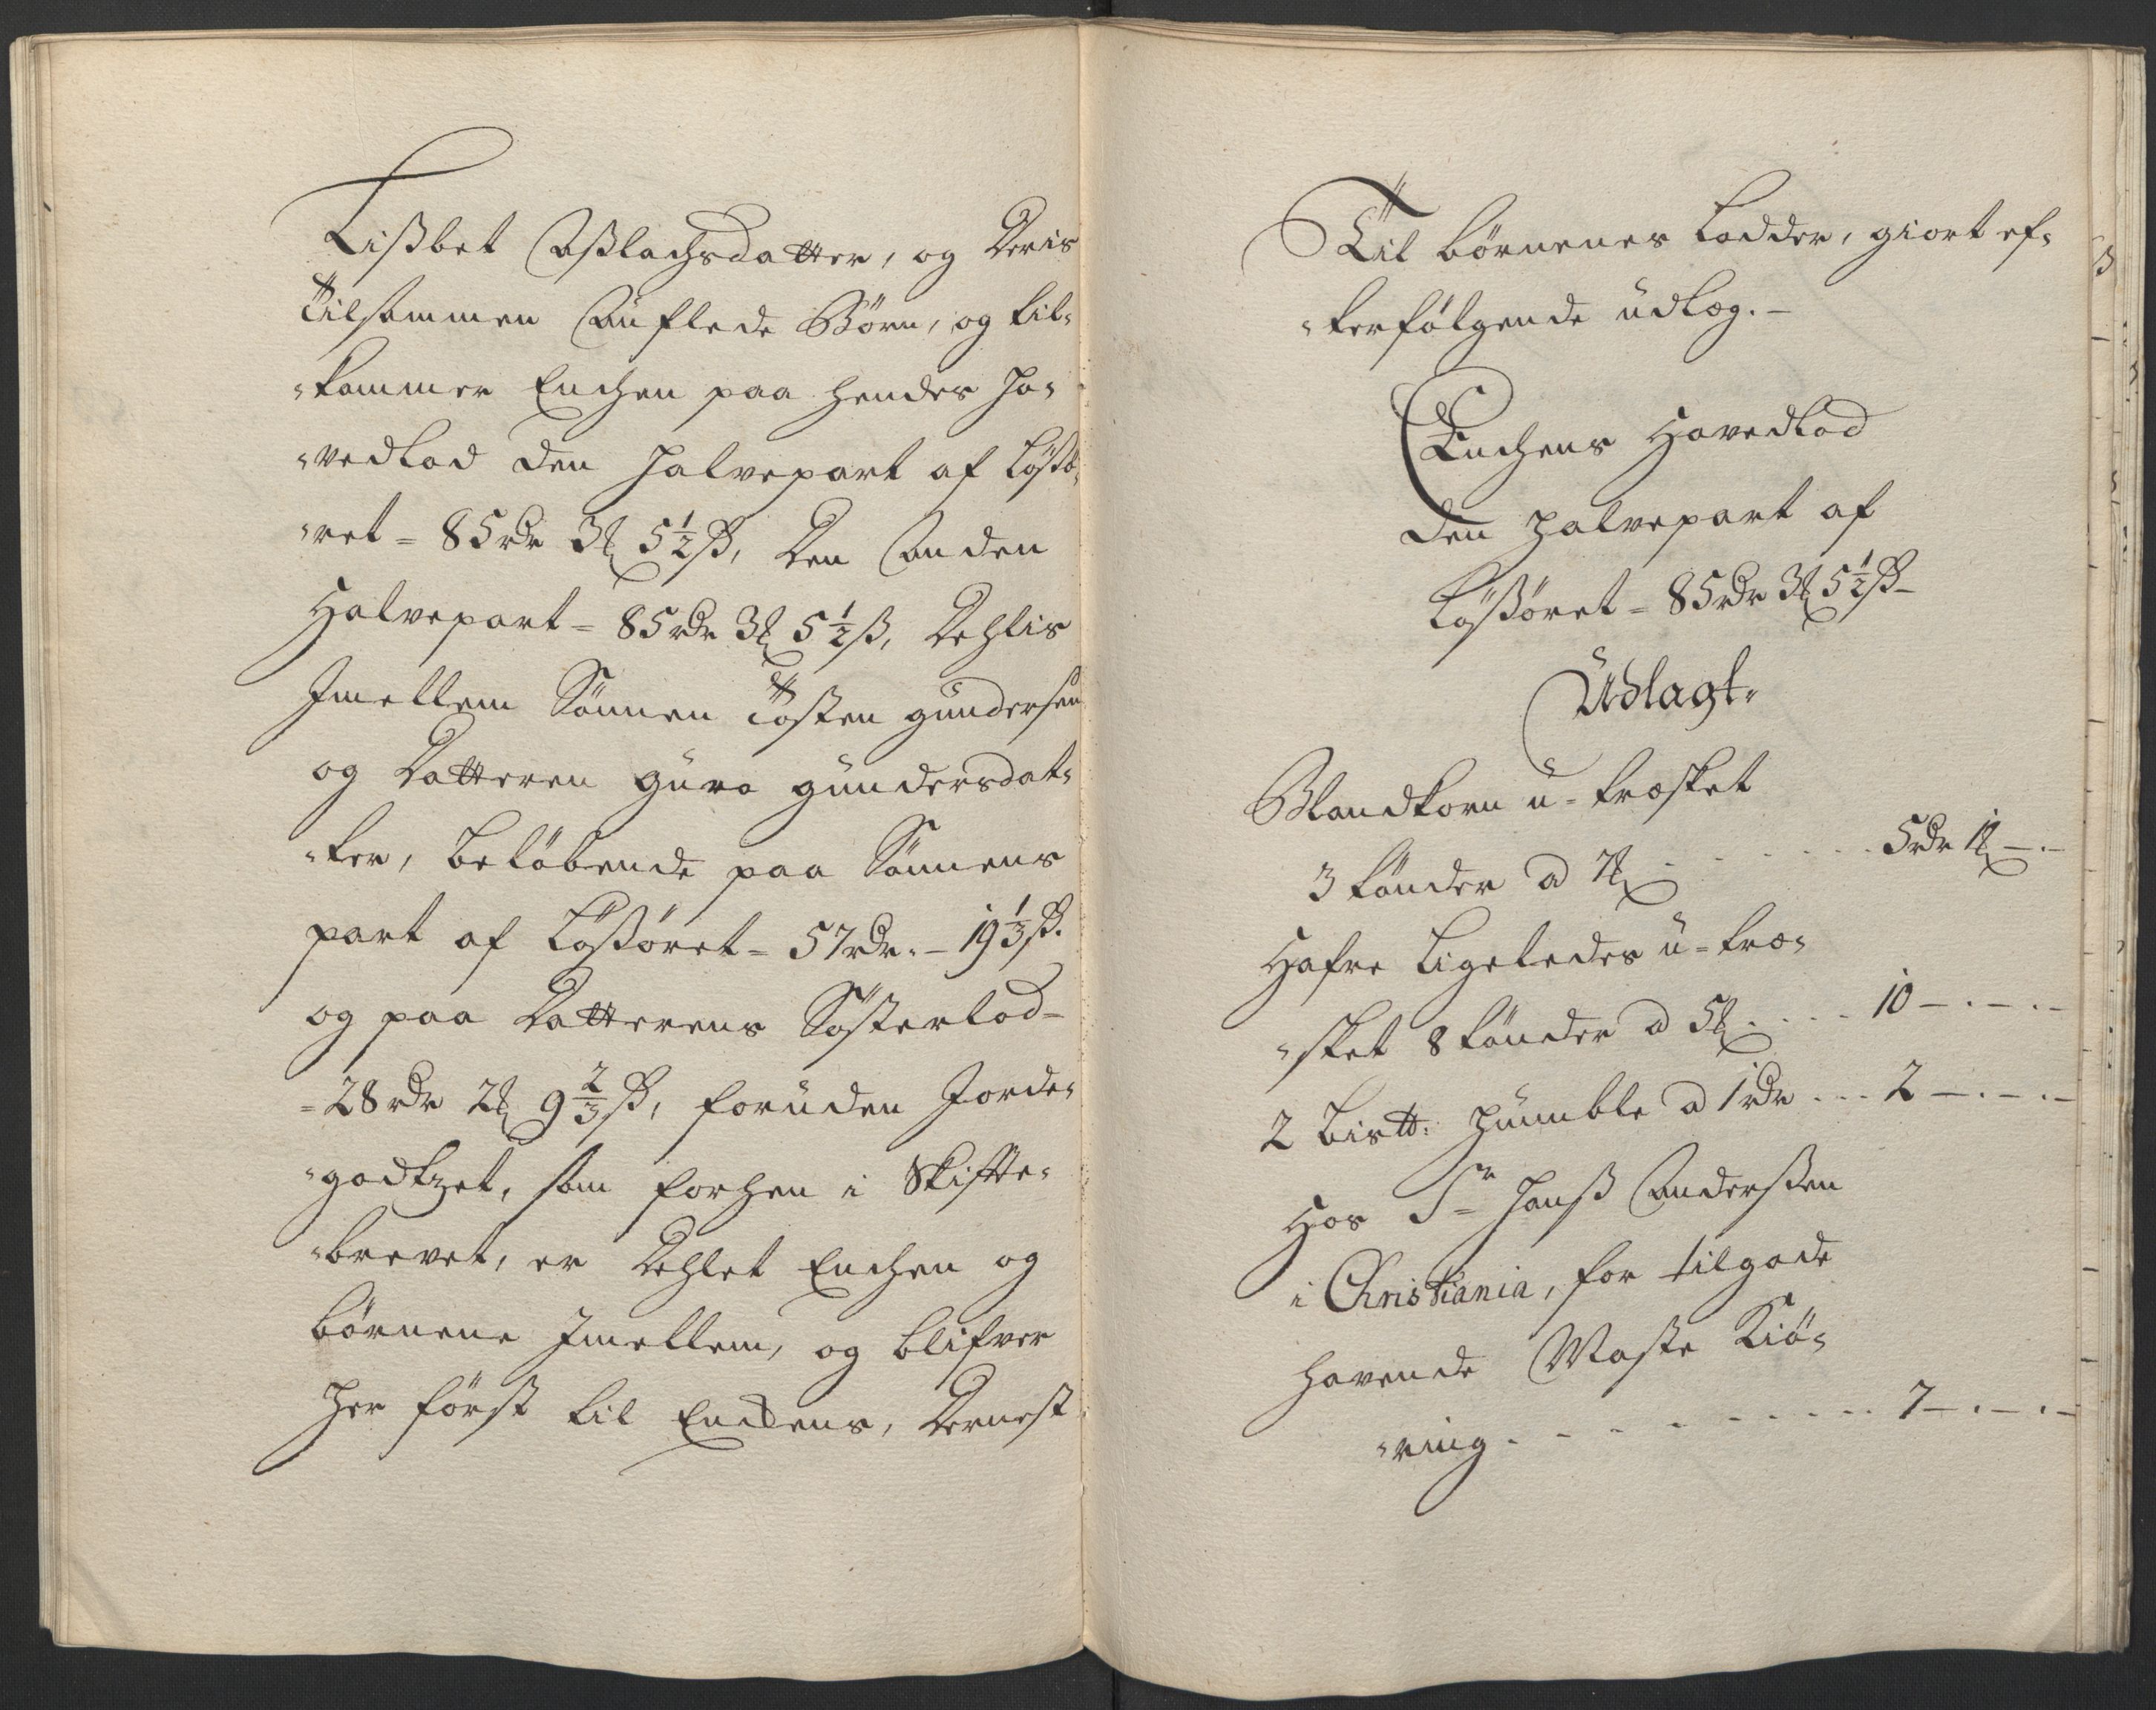 Lißbet Aßlachsdatter, og Deris
Tilsammen Auflede Börn, og til-
-kommer Enchen paa hendes Ho-
-vedLod den halvepart af Lößö-
-ret = 85 rdr 3 ℔ 5½ ß, Den Anden
Halvepart = 85 rdr 3 ℔ 5½ ß, Dehlis
Imellem Sönnen Tösten gundersen
og Datteren guro gundersdat-
-ter, beløbende paa Sönnens
part af Lößöret = 57 rdr. - 19⅓ ß.
og paa Datterens Sösterlod =
= 28 rdr 2 ℔ 9⅔ ß, foruden Jorde-
-godtzet, som forhen i Skifte-
-brevet, er Dehlet Enchen og
börnene Imellem, og blifver
her först til Enchens, Dernest
Til börnenes Lodder, giort ef-
-terfölgende udlæg. -
Enchens HovedLod
den halvepart af
Lößöret = 85 rdr 3 ℔ 5½ ß -
Udlagt.
Blandkorn u-træsket
3 tönder a 7 ℔ . . . . . . 5 rdr 1 ℔ - . -
Hafre Ligeledes u-træ-
-sket 8 tönder a 5 ℔ . . . . 10 - . - . -
2 Bistt: humble a 1 rdr . . . 2 - . - . -
Hos Sr Hanß Anderßen
i Christiania, for tilgode
havende Maste Kiö-
-ring - - - - - - - - - 7 - . - . -